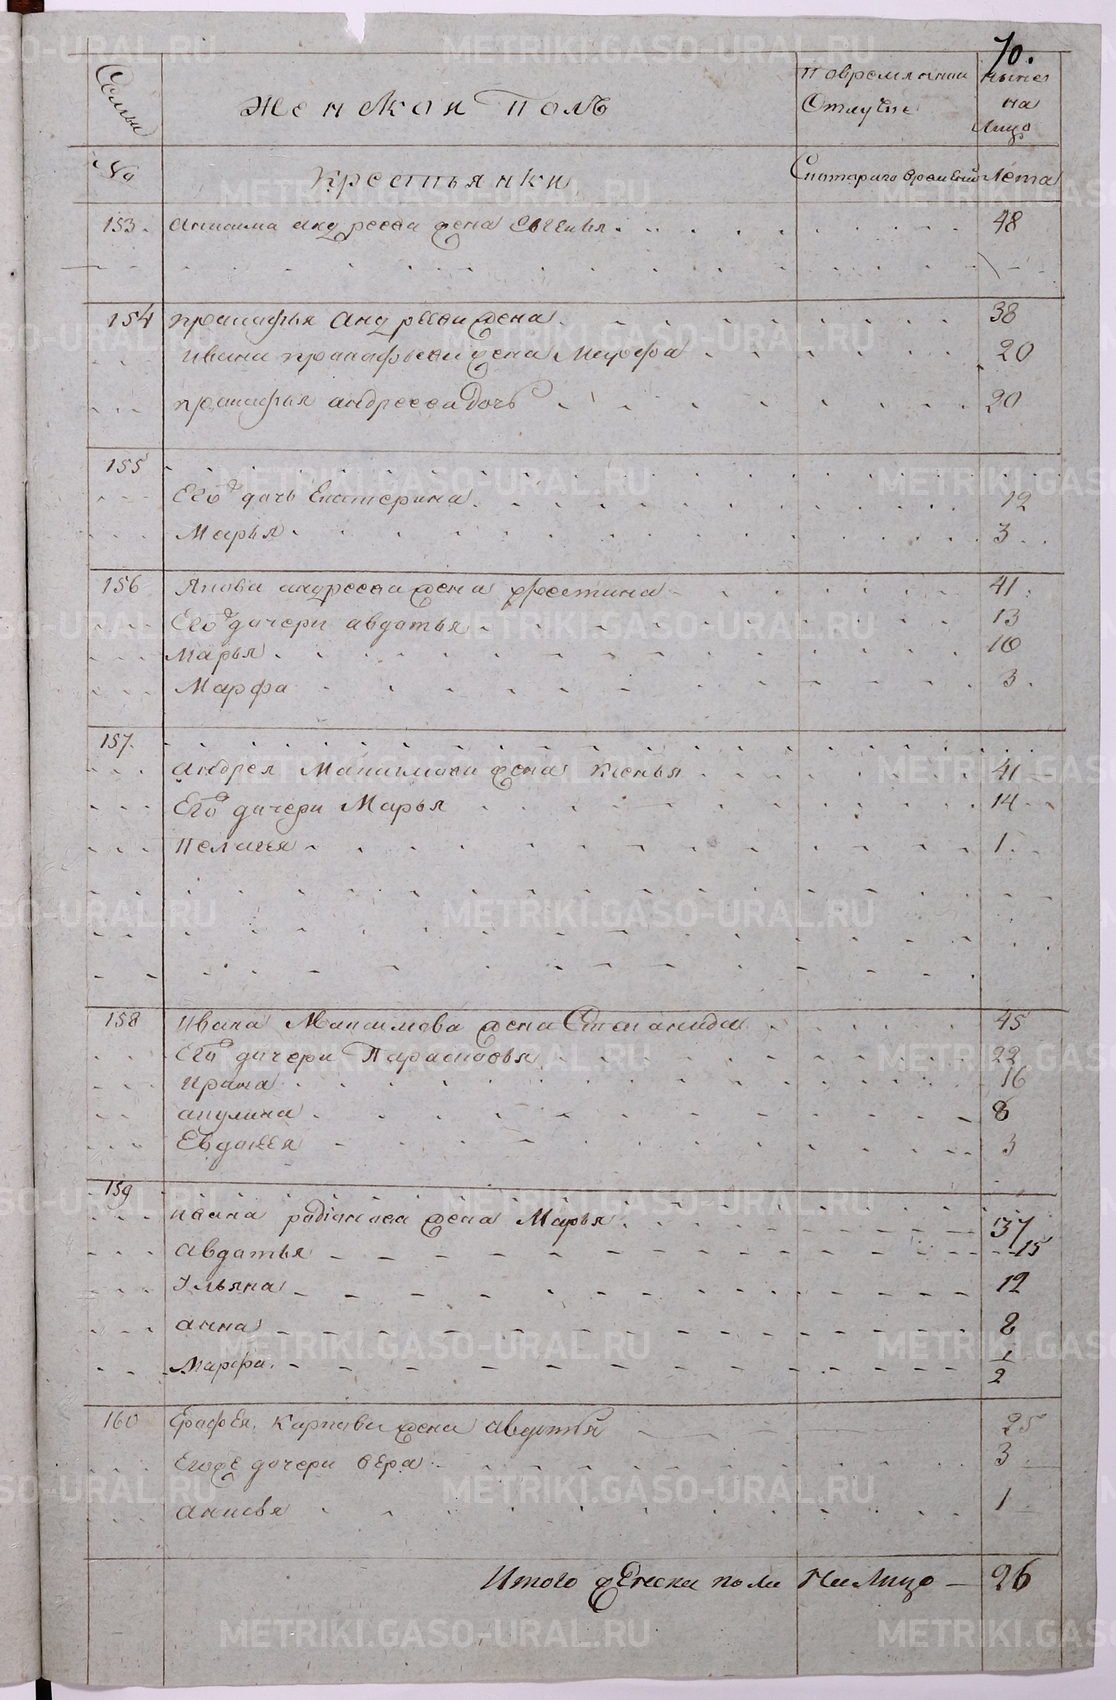 70.
Семьи
Женской Полъ
Во временной Отлучке
ныне на Лицо
№
Крестьянки
Скотораго времени
Лета
153. Анисима Андреева жена Евгенья 48
154 Прокофья Андреева жена 38
Ивана Прокофьева жена Марфа 20
Прокофья Андреева дочь 20
155
Его дочь Екатерина 12
Марья 3
156 Якова Андреева жена Фостина 41
Его дочери Авдотья 13
Марья 10
Марфа 3
157.
Андрея Максимова жена Ксенья 41
Его дочери Марья 14
Пелагея 1
158 Ивана Максимова жена Степанида 45
Его дочери Парасковья 22
Ирина 16
Акулина 8
Евдокея 3
159
Ивана Радіонова жена Марья 37
Авдотья 15
Ульяна 12
Анна 8
Марфа 1/2
160 Ерофѣя Карпова жена Авдотья 25
Егожѣ дочери Вѣра 3
Анисья 1
Итого Женска пола На Лицо — 26
METRIKI.GASO-URAL.RU